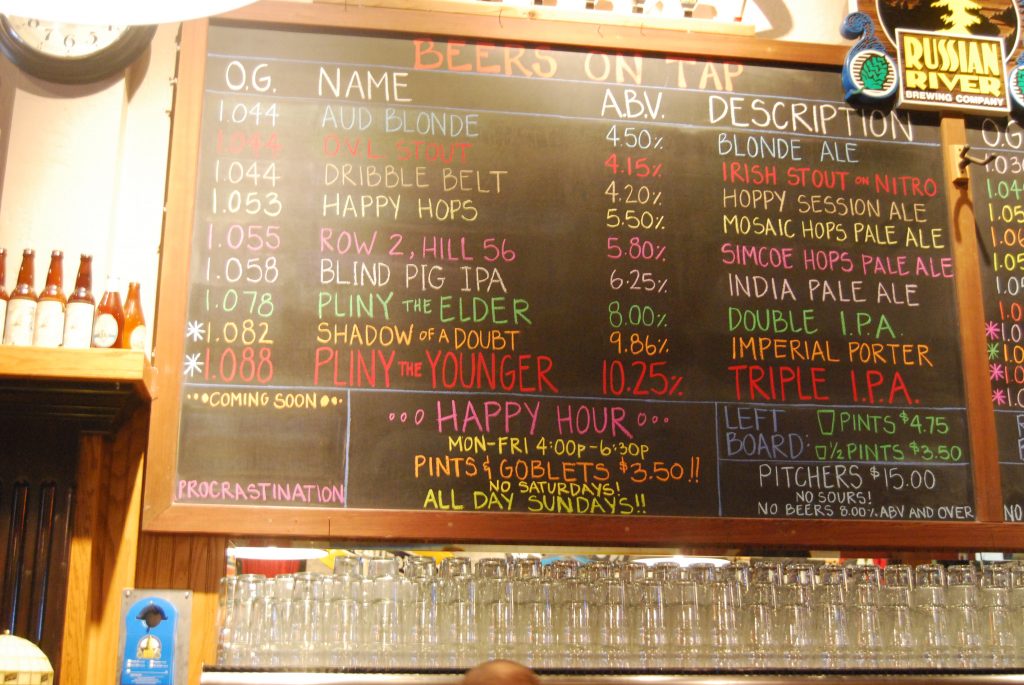 BEERS ON TAP
RUSSIAN
RIVER
BREWING COMPANY
O.G. NAME A.B.V. DESCRIPTION
1.044 AUD BLONDE 4.50% BLONDE ALE
1.044 O.V.L. STOUT 4.15% IRISH STOUT ON NITRO
1.044 DRIBBLE BELT 4.20% HOPPY SESSION ALE
1.053 HAPPY HOPS 5.50% MOSAIC HOPS PALE ALE
1.055 ROW 2, HILL 56 5.80% SIMCOE HOPS PALE ALE
1.058 BLIND PIG IPA 6.25% INDIA PALE ALE
1.078 PLINY THE ELDER 8.00% DOUBLE I.P.A.
*1.082 SHADOW OF A DOUBT 9.86% IMPERIAL PORTER
*1.088 PLINY THE YOUNGER 10.25% TRIPLE I.P.A.
COMING SOON
PROCRASTINATION
HAPPY HOUR
MON-FRI 4:00P-6:30P
PINTS & GOBLETS $3.50!!
NO SATURDAYS!
ALL DAY SUNDAYS!!
LEFT BOARD:
PINTS $4.75
1/2 PINTS $3.50
PITCHERS $15.00
NO SOURS!
NO BEERS 8.00% ABV AND OVER
O.G